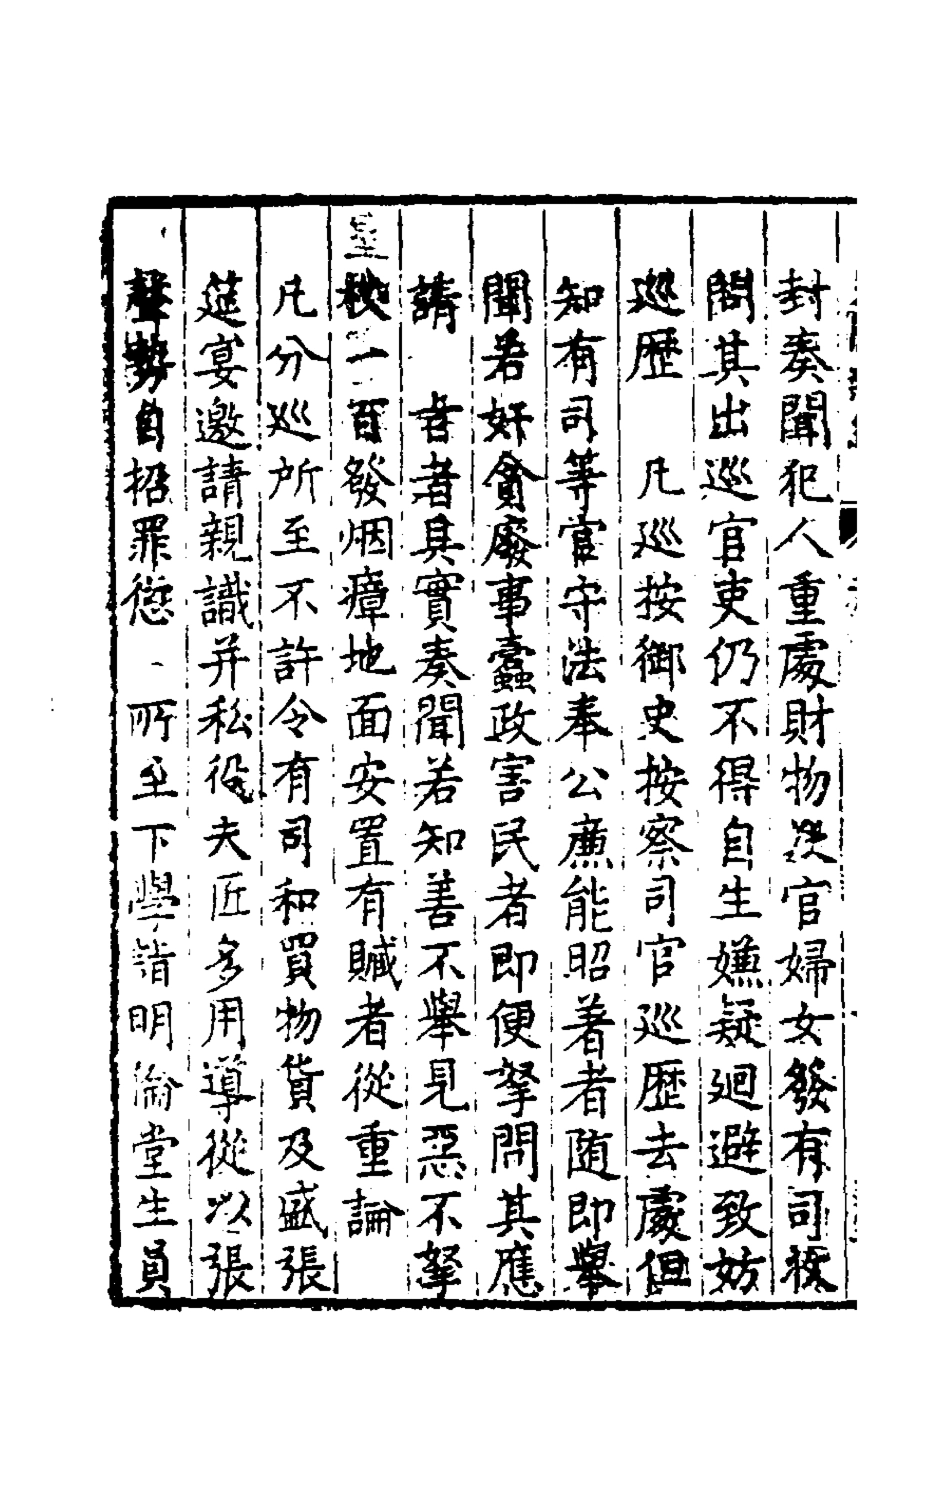 封奏聞犯人重處財物沒官婦女發有司收
問其出巡官吏仍不得自生嫌疑廻避致妨
巡歷　凡巡按御史按察司官巡歷去處但
知有司等官守法奉公廉能昭著者随即舉
聞若奸貪廢事蠹政害民者即便拏問其應
請　者者具實奏聞若知善不舉見惡不拏
杖一百發烟瘴地面安置有贓者從重論
凡分巡所至不許令有司和買物貨及盛張
筵宴邀請親識并私役夫匠多用導從以張
聲勢自招罪愆　所至下學詣明倫堂生員